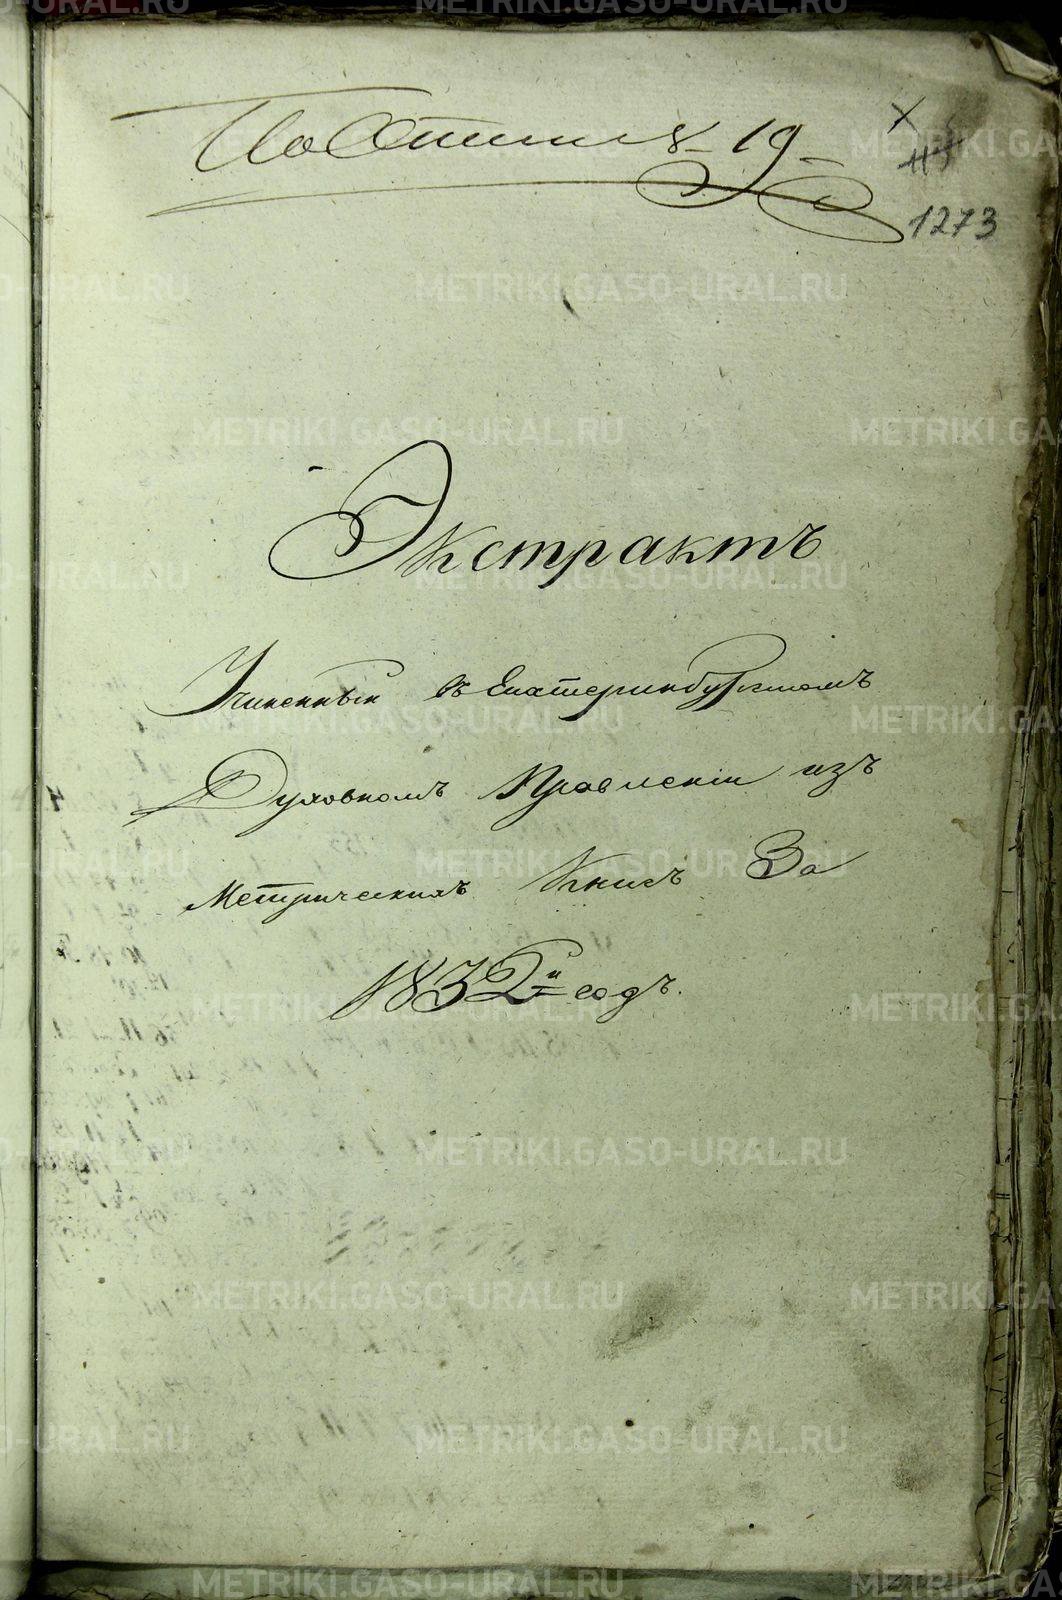 По Описи № 19
1273
Экстрактъ
Учиненный въ Екатеринбургскомъ
Духовномъ Правленiи изъ
Метрическихъ Книгъ За
1832й годъ.
METRIKI.GASO-URAL.RU